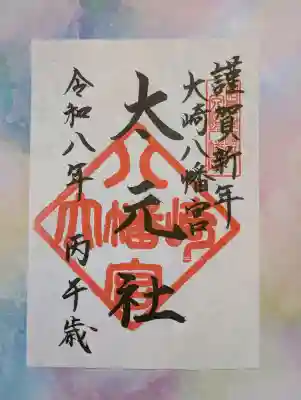 謹賀新年
大崎八幡宮
大元社
令和八年 丙午歳
大崎八幡宮